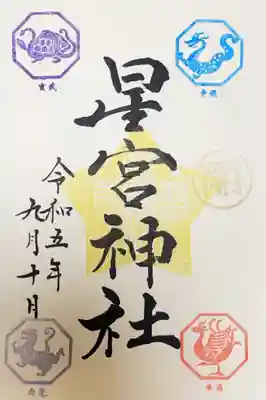 星宮神社
令和五年
九月十日
玄武
青龍
白虎
朱雀